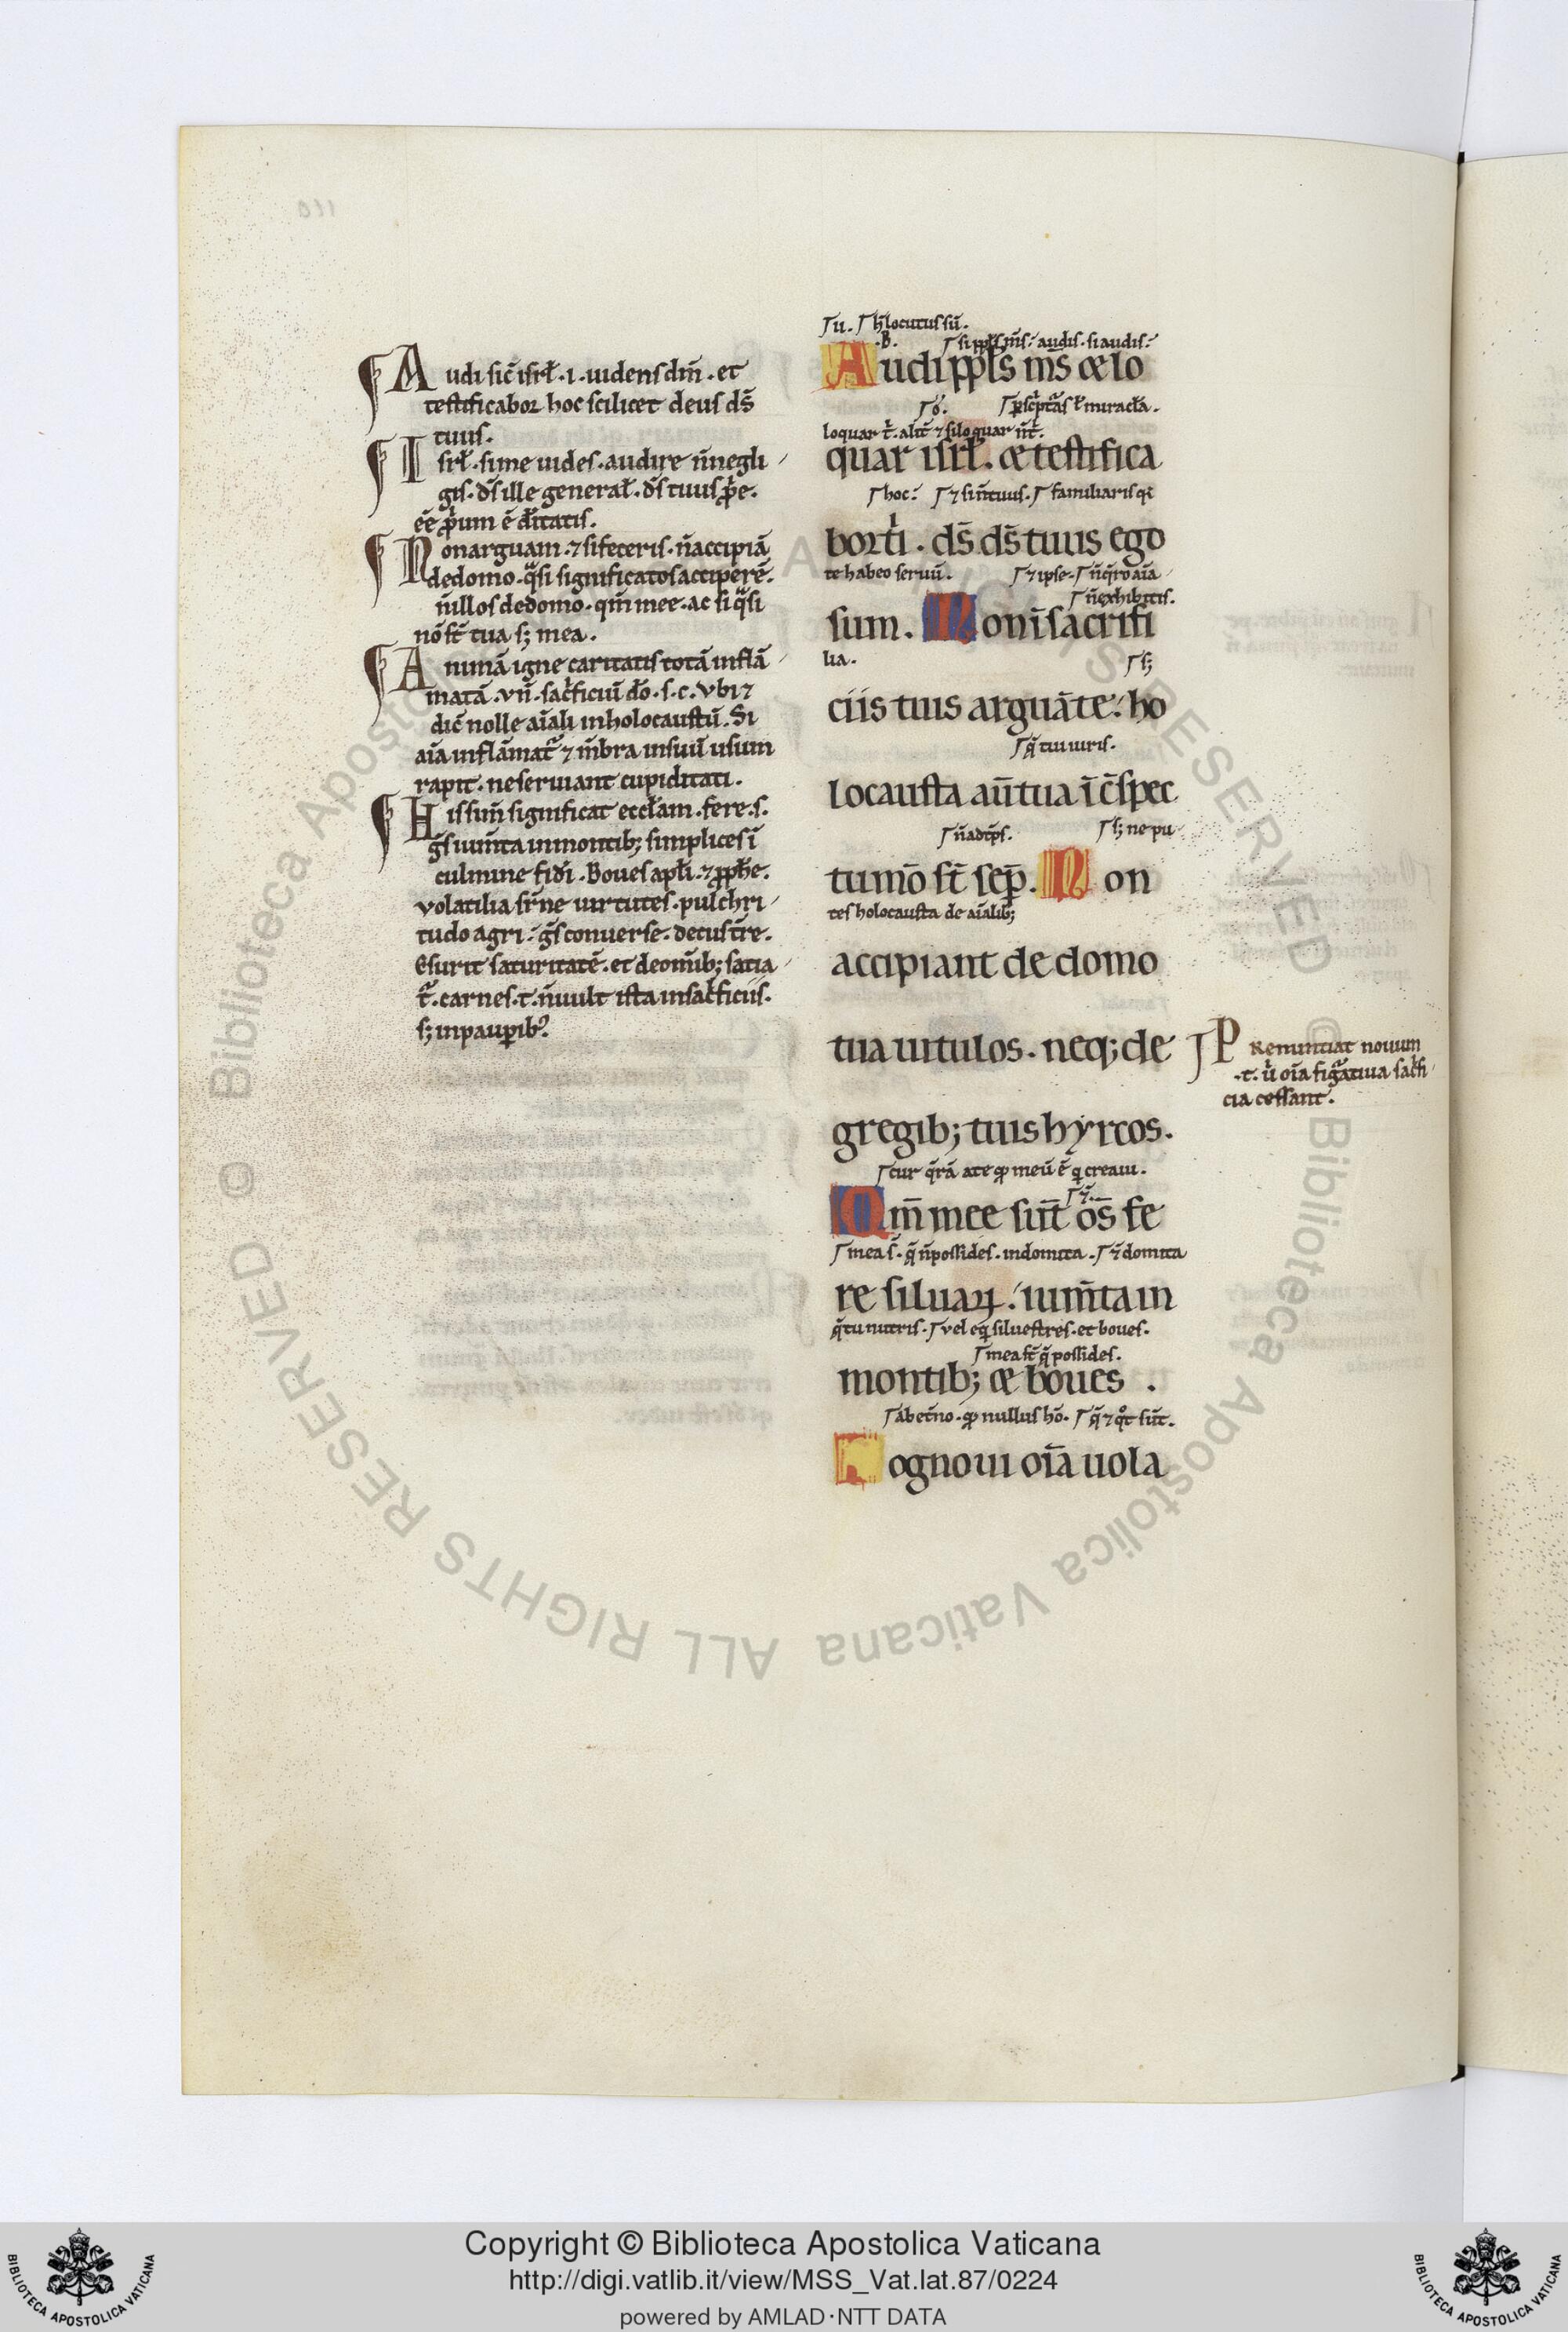 Audi sic̄ isrł .i. uidens dm̄ . et
testificabor hoc scilicet deus ds̄
tuus .
Isrł . si me uides . audire n̄ negli
gis . ds̄ ille generał . ds̄ tuus
Non arguam . ⁊ si feceris . n̄ accipiā
de domo . q̄si significatos accipere .
n̄ illos de domo . qm̄ mee . ac si q̄si
nō st̄ tua sꝫ mea .
Animā igne caritatis totā inflā
matā . un̄ . sac̄ficiū dō . s. c. Vbi ⁊
dic̄ nolle aīali in holocaustū . Si
aīa inflāmat̄ ⁊ m̄bra in suū usum
rapit . ne seruiant cupiditati .
His sum̄ significat eccłam . fere .s.
ḡs ium̄ta in montibꝫ simplices ī
culmine fidi . Boues apłi . ⁊ ꝓphe .
volatilia sr̄ne uirtutes . pulchri
tudo agri . ḡs conuerse . decus tr̄e .
Esurit saturitatē . et de om̄ibꝫ satia
t̄ . carnes . t. n̄ uult ista in sac̄ficiis .
sꝫ in pauꝑibꝰ .
Γu . Γh̄ locutus sū .
.B. Γsi ppłs m̄s . audis . si audis .
Audi ppłs m̄s & lo
Γo . Γ miracła .
loquar t̄ . alit̄ ⁊ si loquar n̄t̄ .
quar isrł . & testifica
Γhoc . Γ⁊ sim̄ tuus . Γfamiliaris qi
bor ti . ds̄ ds̄ tuus ego
te habeo seruū . Γ⁊ ipse . Γn̄ q̄ro aīa
Γn̄ exhibitis .
sum . Non ī sacrifi
lia . Γsꝫ
ciis tuis arguā te : ho
Γq̄ tu uiris .
locausta aū tua ī c̄spec
Γn̄ adep̄s . Γsꝫ ne pu
tu mō st̄ sep̄ . Non
tes holocausta de aīalibꝫ
accipiam de domo
tua uitulos . neqꝫ de
Prenuntiat nouum
.t. ū oīa fiḡatiua sac̄fi
cia cessant .
gregibꝫ tuis hyrcos .
Γcur q̄rā a te qp̄ meū ē q̄ creaui .
Qm̄ mee sūt ōs fe
Γmea s̄ . q̄ n̄ possides . indomita . Γ⁊ domita
re siluaꝝ . ium̄ta in
q̄ tu nutris . Γvel eq̄ siluestres . et boues .
Γmea st̄ q̄ possides .
montibꝫ & boues .
Γab et̄no . qp̄ nullus hō . Γq̄ ⁊ qͦt sūt .
Cognoui oīa uola
Copyright © Biblioteca Apostolica Vaticana
http://digi.vatlib.it/view/MSS_Vat.lat.87/0224
powered by AMLAD·NTT DATA
BIBLIOTECA APOSTOLICA VATICANA
BIBLIOTECA APOSTOLICA VATICANA
© Biblioteca Apostolica Vaticana ALL RIGHTS RESERVED